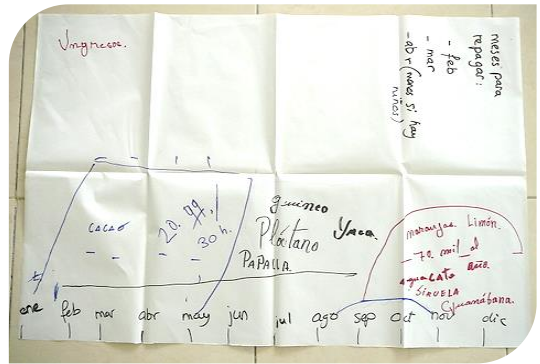 Ingresos.
meses para
repagar:
- feb
- mar
- abr (menos si hay
niños)
CACAO
30 h.
guineo
Plátano
PAPALLA.
Yuca.
naranjas. Limón.
- 70 mil al
año.
aguacate
SIRUELA
Guanábana.
ene feb mar abr may jun jul ago sep oct nov dic